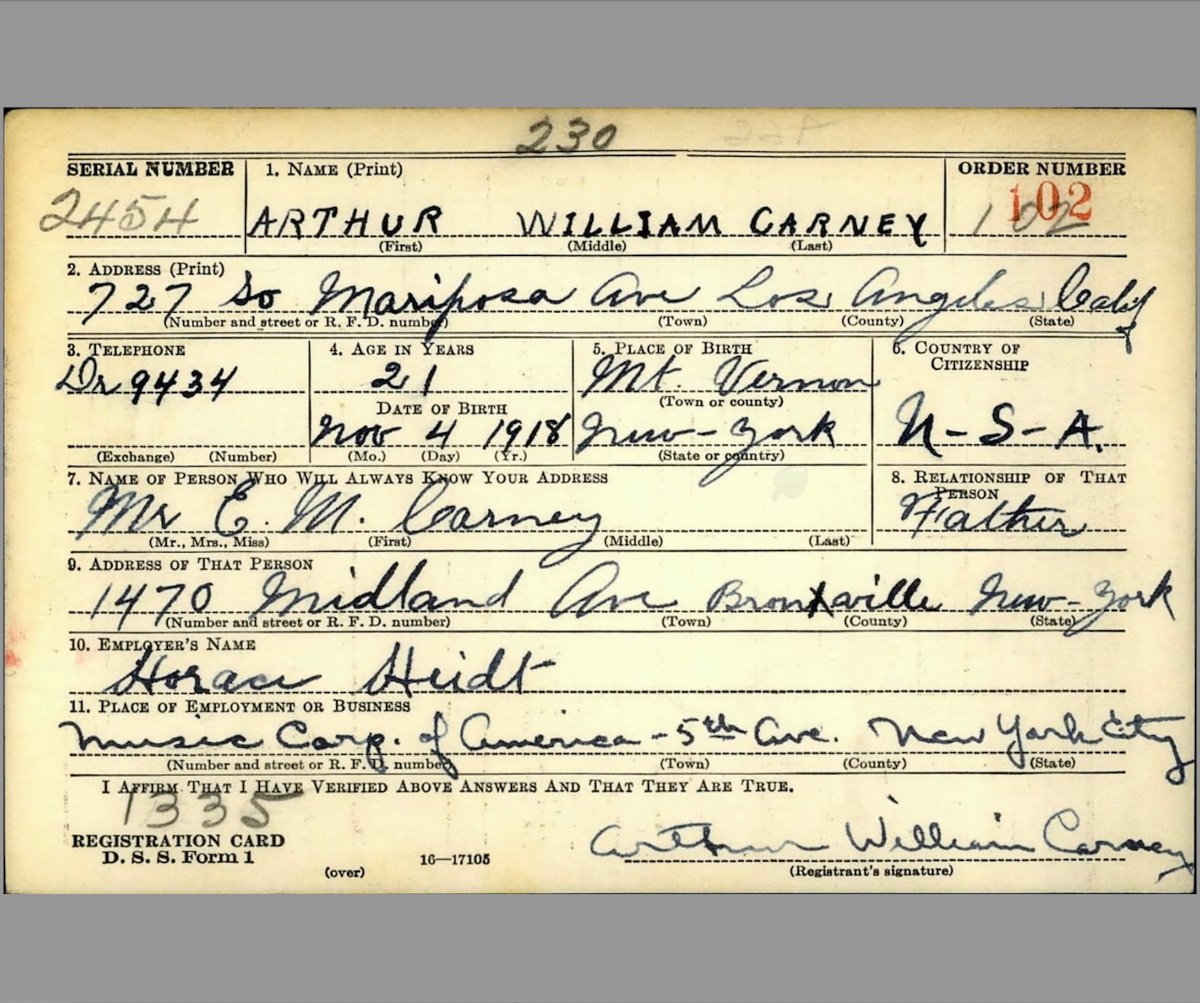 230
SERIAL NUMBER 1. NAME (Print) ORDER NUMBER
2454 ARTHUR WILLIAM CARNEY 102 102
(First) (Middle) (Last)
2. ADDRESS (Print)
727 So Mariposa Ave Los Angeles Calif
(Number and street or R. F. D. number) (Town) (County) (State)
3. TELEPHONE 4. AGE IN YEARS 5. PLACE OF BIRTH 6. COUNTRY OF CITIZENSHIP
Dr 9434 21 Mt. Vernon
(Town or county)
DATE OF BIRTH
Nov 4 1918 New-York U-S-A.
(Exchange) (Number) (Mo.) (Day) (Yr.) (State or country)
7. NAME OF PERSON WHO WILL ALWAYS KNOW YOUR ADDRESS 8. RELATIONSHIP OF THAT PERSON
Mr E. M. Carney Father
(Mr., Mrs., Miss) (First) (Middle) (Last)
9. ADDRESS OF THAT PERSON
1470 Midland Ave Bronxville New-York
(Number and street or R. F. D. number) (Town) (County) (State)
10. EMPLOYER'S NAME
Horace Heidt
11. PLACE OF EMPLOYMENT OR BUSINESS
Music Corp. of America - 5th Ave. New York City
(Number and street or R. F. D. number) (Town) (County) (State)
I AFFIRM THAT I HAVE VERIFIED ABOVE ANSWERS AND THAT THEY ARE TRUE.
1335
REGISTRATION CARD
D. S. S. Form 1 16—17105 Arthur William Carney
(over) (Registrant's signature)